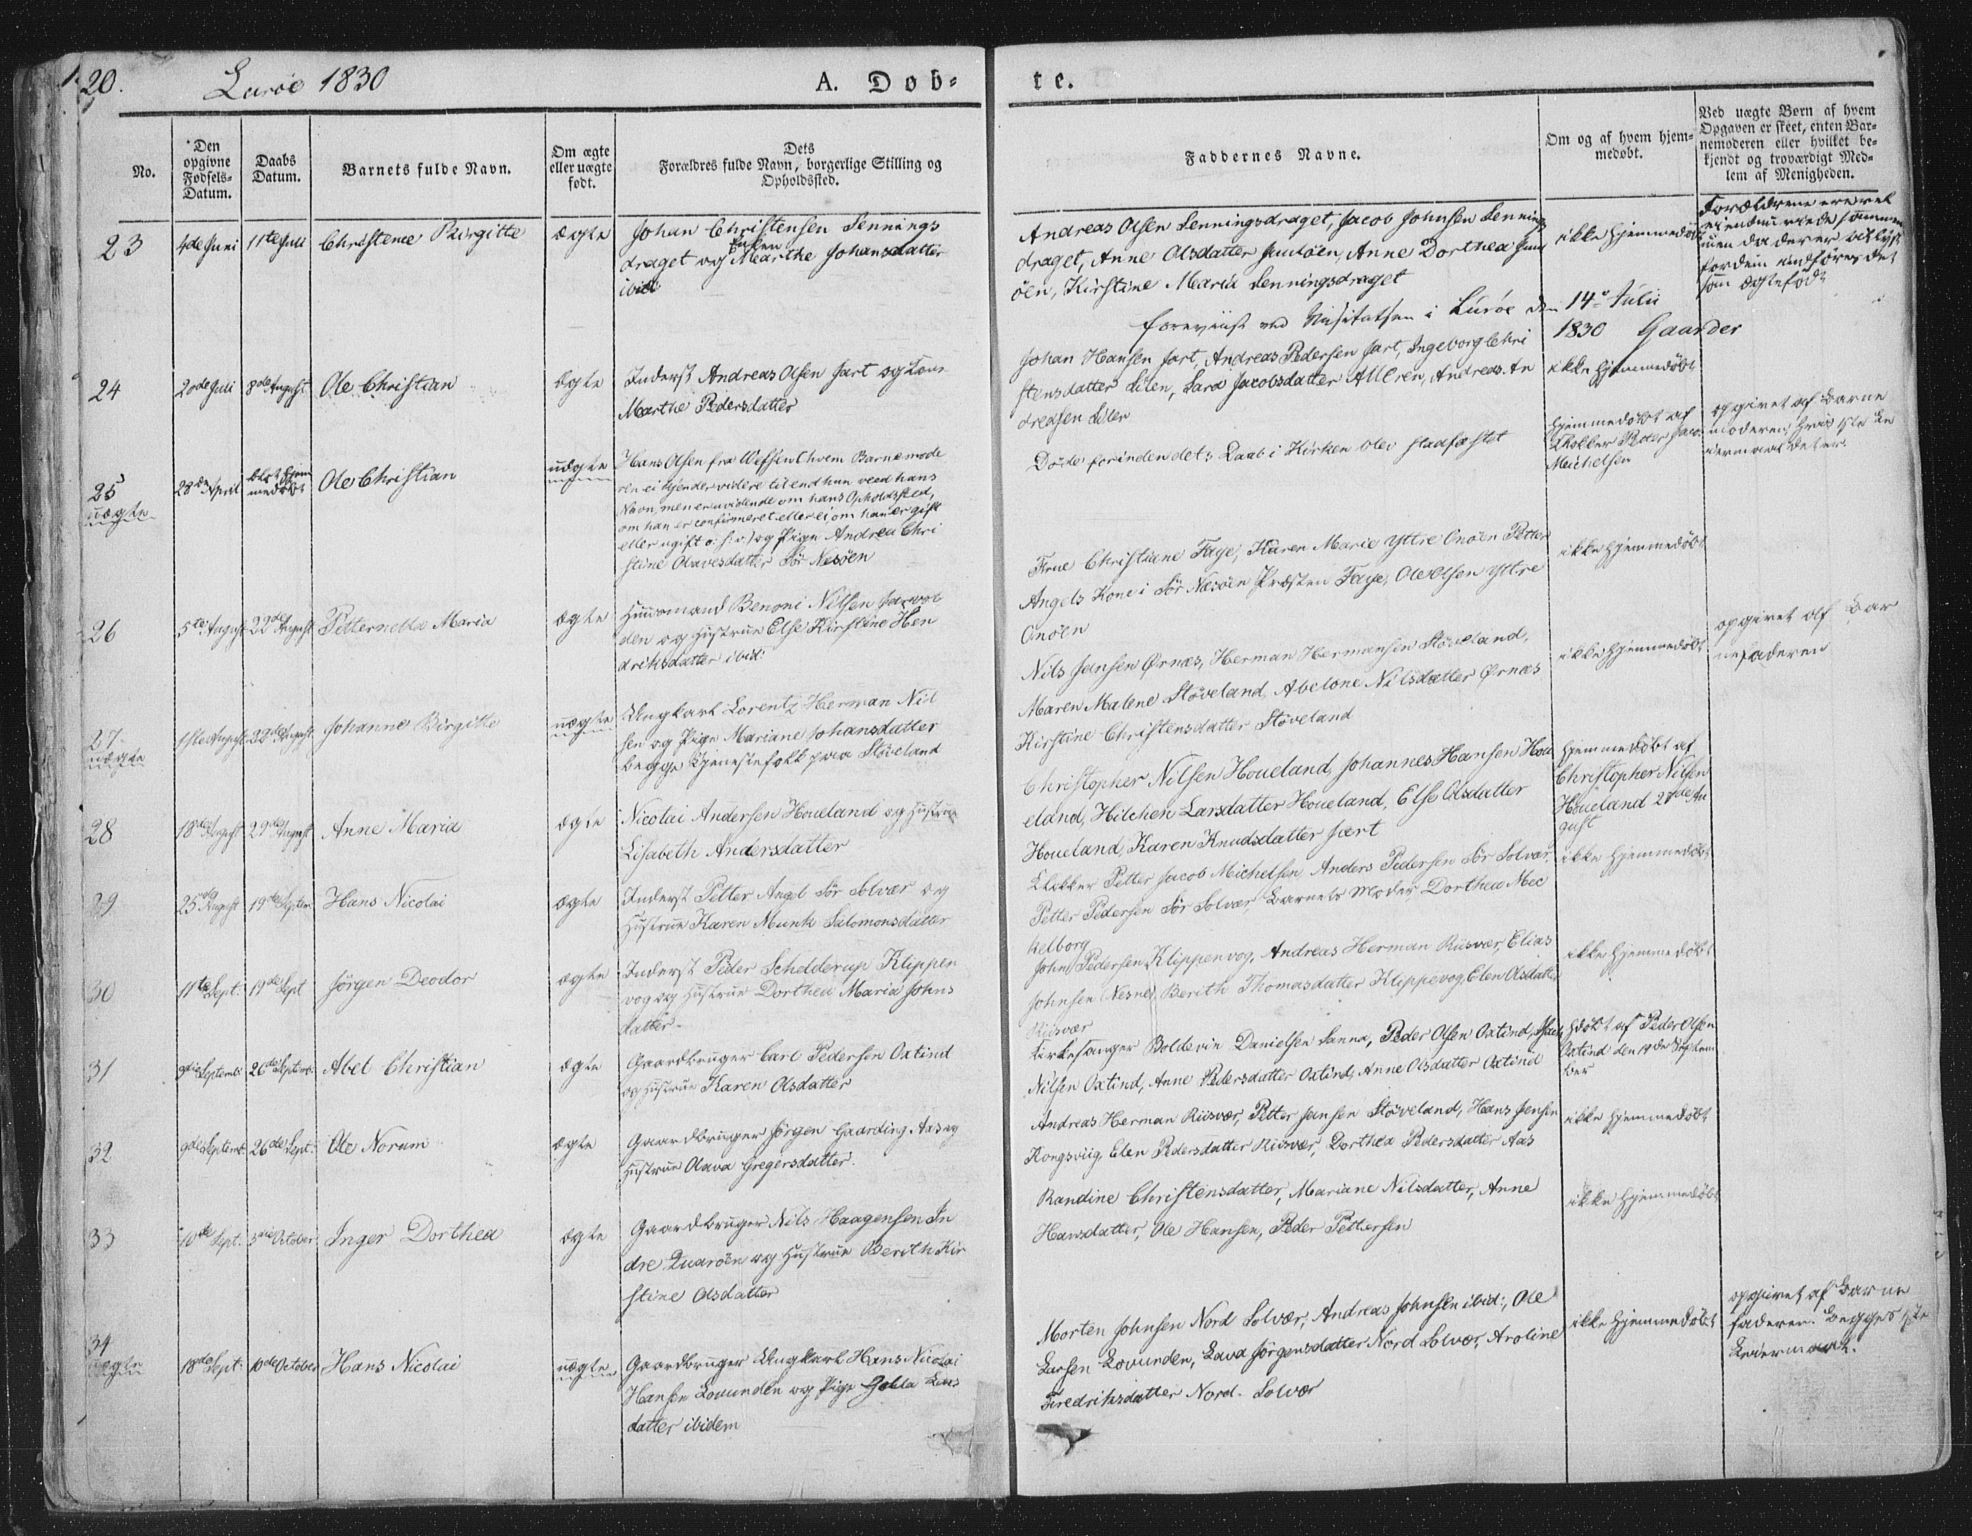 120. Lurøe 1830 A. Døb-
te.
No.
Den opgivne Fødsels-Datum.
Daabs Datum.
Barnets fulde Navn.
Om ægte eller uægte født.
Dets Forældres fulde Navn, borgerlige Stilling og Opholdssted.
Faddernes Navne.
Om og af hvem hjem-medøbt.
Ved uægte Børn af hvem
Opgaven er skeet, enten Bar-
nemoderen eller hvilket be-
kjendt og troværdigt Med-
lem af Menigheden.
23 4de Juni 11te Juli Christence Birgitte ægte
Johan Christensen Lennings
draget og Enken Marthe Johansdatter
ibid
Andreas Olsen Lenningsdraget, Jacob Johnsen Lennings
draget, Anne Olsdatter, Anne Dorthea
øen, Kirstine Maria Lenningsdraget
ikke hjemmedøbt
Forældrene ere vel
ei endnu viede sammen
men da der er tillyst
for dem indføres det
som ægtefødt
foreviist ved Visitatsen i Lurøe den 14de Julii
1830 Gaarder
24 20de Juli 8de August Ole Christian ægte
Inderst Andreas Olsen Sart og Kone
Marthe Pedersdatter
Johan Hansen Sart, Andreas Pedersen Sart, Ingeborg Chri
stensdatter Lilen, Sara Jacobsdatter, Andreas An
dreasen Lilen
ikke hjemmedøbt
25 uægte 28de April blot hjem medøbt Ole Christian uægte
Hans Olsen fra Vefsen (hvem Barnemode
ren ei kjender videre til end hun veed hans
Navn, men er uvidende om hans Opholdssted,
om han er confirmeret eller ei om han er gift
eller ugift o: s: v:) og Pige Andrea Chri
stine Olavesdatter Sør Nesøen
Døde forinden dets Daab i Kirken blev stadfæstet
hjemmedøbt af
Klokker Petter Jacob
Michelsen
opgivet af Barne
moderen, hvis 1ste Le
iermaal det er.
26 5te August 22de August Petternella Maria ægte
Huusmand Benoni Nilsen
den og Hustrue Else Kirstine Hen
driksdatter ibid:
Frue Christiane Faye, Karen Marie Yttre Onøen Petter
Angels Kone i Sør Nesøen Præsten Faye, Ole Olsen Yttre
Onøen
ikke hjemmedøbt
27. uægte 11te August 22de August Johanne Birgitte uægte
Ungkarl Lorentz Herman Nil
sen og Pige Mariane Johansdatter
begge Tjenestefolk paa Støveland
Nils Jensen Ørnæs, Herman Hermansen Støveland,
Maren Malene Støveland Abelone Nilsdatter Ørnæs
Kirstine Christensdatter Støveland
ikke hjemmedøbt
opgivet af Bar
nefaderen
28 18de August 29de August Anne Maria ægte
Nicolai Andersen Houeland og Hustrue
Lisabeth Andersdatter
Christopher Nilsen Houeland, Johannes Hansen Hou
eland, Hilchen Larsdatter Houeland, Else Olsdatter
Houeland, Karen Knudsdatter Sært
hjemmedøbt af
Christopher Nilsen
Houeland 27de Au
gust
29 25de August 19de Septbr. Hans Nicolai ægte
Inderst Petter Angel Sør Solvær og
Hustrue Karen Munk Salomonsdatter
Klokker Petter Jacob Michelsen, Anders Pedersen Sør Solvær,
Petter Pedersen Sør Solvær, Barnets Moder, Dorthea Mec
kelborg
ikke hjemmedøbt
30 11te Sept. 19de Sept Jørgen Deodor ægte
Inderst Peder Schelderup Klippen
vog og Hustrue Dorthea Maria Johns
datter.
John Pedersen Klippenvog, Andreas Herman Riisvær, Elias
Johnsen Nesne, Berith Thomasdatter Klippevog, Elen Olsdatter
Riisvær
ikke hjemmedøbt
31 Septembr 26de Septembr. Abel Christian ægte
Gaardbruger Carl Pedersen Oxtind
og Hustrue Karen Olsdatter
Kirkesanger Boldevin Danielsen Sanna, Peder Olsen Oxtind,
Nilsen Oxtind, Anne Pedersdatter Oxtind, Anne Olsdatter Oxtind
Hdøbt af Peder Olsen
Oxtind den 19de Septem
ber
32 9de Septemb. 26de Sept. Ole Norum ægte
Gaardbruger Jørgen Gaarding Aas og
Hustrue Olava Gregersdatter.
Andreas Herman Riisvær, Petter Jansen Støveland, Hans Jensen
Kongsviig, Elen Pedersdatter Riisvær, Dorthea Pedersdatter Aas
ikke hjemmedøbt
33 10de Sept. 3die October. Inger Dorthea ægte
Gaardbruger Nils Haagensen In
dre Quarøen og Hustrue Berith Kir
stine Olsdatter
Randine Christensdatter, Mariane Nilsdatter, Anne
Hansdatter, Ole Hansen, Peder Pettersen
ikke hjemmedøbt
34 uægte 18de Sept. 10de October Hans Nicolai uægte
Gaardbruger Ungkarl Hans Nicolai
Hansen Lovunden og Pige Golla Lars
datter ibidem
Morten Johnsen Nord Solvær, Andreas Johnsen ibid:, Ole
Larsen Lovunden, Lava Jørgensdatter Nord Solvær, Aroline
Fredriksdatter Nord-Solvær
ikke hjemmedøbt
opgivet af Barne
faderen. Begges 1ste
Leiermaal.